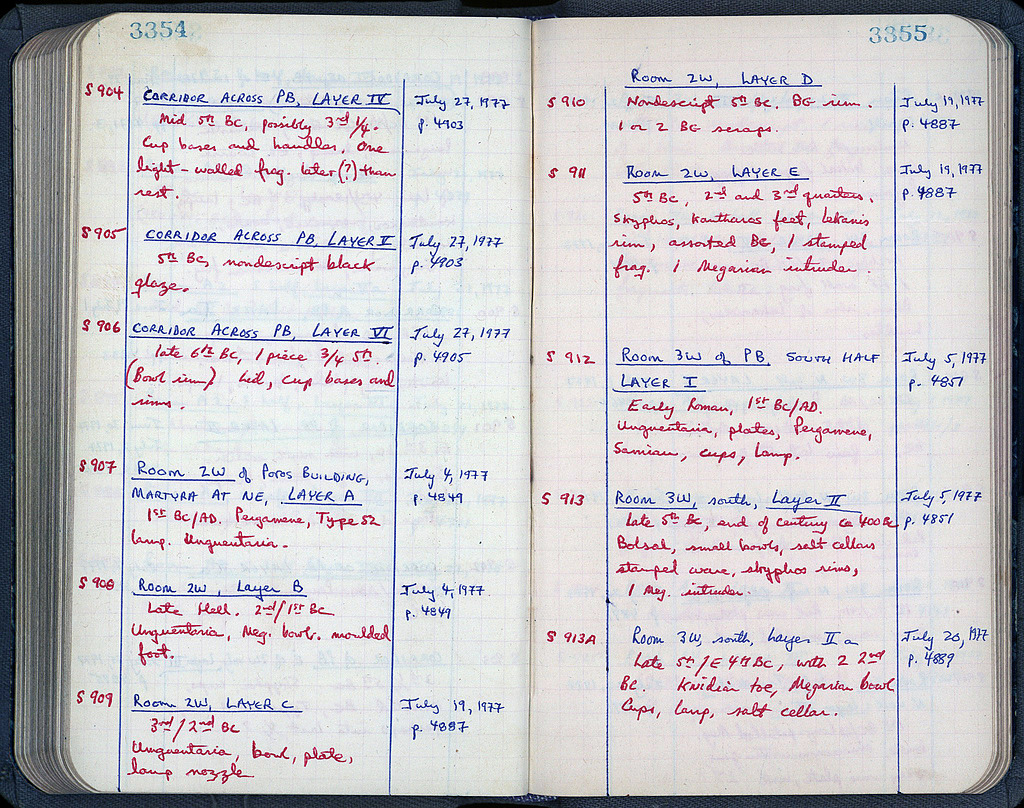 3354
S 904 CORRIDOR ACROSS PB, LAYER IV July 27, 1977
Mid 5th BC, possibly 3rd 1/4. p. 4903
Cup bases and handles. One
light-walled frag. later (?) than
rest.
S 905 CORRIDOR ACROSS PB, LAYER V July 27, 1977
5th BC, nondescript black p. 4903
glaze.
S 906 CORRIDOR ACROSS PB, LAYER VI July 27, 1977
late 6th BC, 1 piece 3/4 5th. p. 4905
(Bowl rim) Lid, cup bases and
rims.
S 907 ROOM 2W of POROS BUILDING, July 4, 1977
MARTYRA AT NE, LAYER A p. 4849
1st BC/AD. Pergamene, Type 52
lamp. Unguentaria.
S 908 ROOM 2W, Layer B July 4, 1977.
Late Hell. 2nd/1st BC p. 4849
Unguentaria, Meg. bowl. moulded
foot.
S 909 ROOM 2W, LAYER C July 19, 1977
3rd/2nd BC p. 4887
Unguentaria, bowl, plate,
lamp nozzle
3355
ROOM 2W, LAYER D
S 910 Nondescript 5th BC. BG rim. July 19, 1977
1 or 2 BG scraps. p. 4887
S 911 ROOM 2W, LAYER E July 19, 1977
5th BC, 2nd and 3rd quarters. p. 4887
Skyphos, Kantharos feet, Lekanis
rim, assorted BG, 1 stamped
frag. 1 Megarian intruder.
S 912 ROOM 3W of PB, SOUTH HALF July 5, 1977
LAYER I p. 4851
Early Roman, 1st BC/AD.
Unguentaria, plates, Pergamene,
Samian, cups, lamp.
S 913 ROOM 3W, south, Layer II July 5, 1977
Late 5th BC, end of century ca 400 BC p. 4851
Bolsal, small bowls, salt cellars
stamped ware, skyphos rims,
1 Meg. intruder.
S 913A Room 3W, south, Layer II a July 20, 1977
Late 5th/E 4th BC, with 2 2nd p. 4889
BC. Knidian toe, Megarian bowl
Cups, lamp, salt cellar.